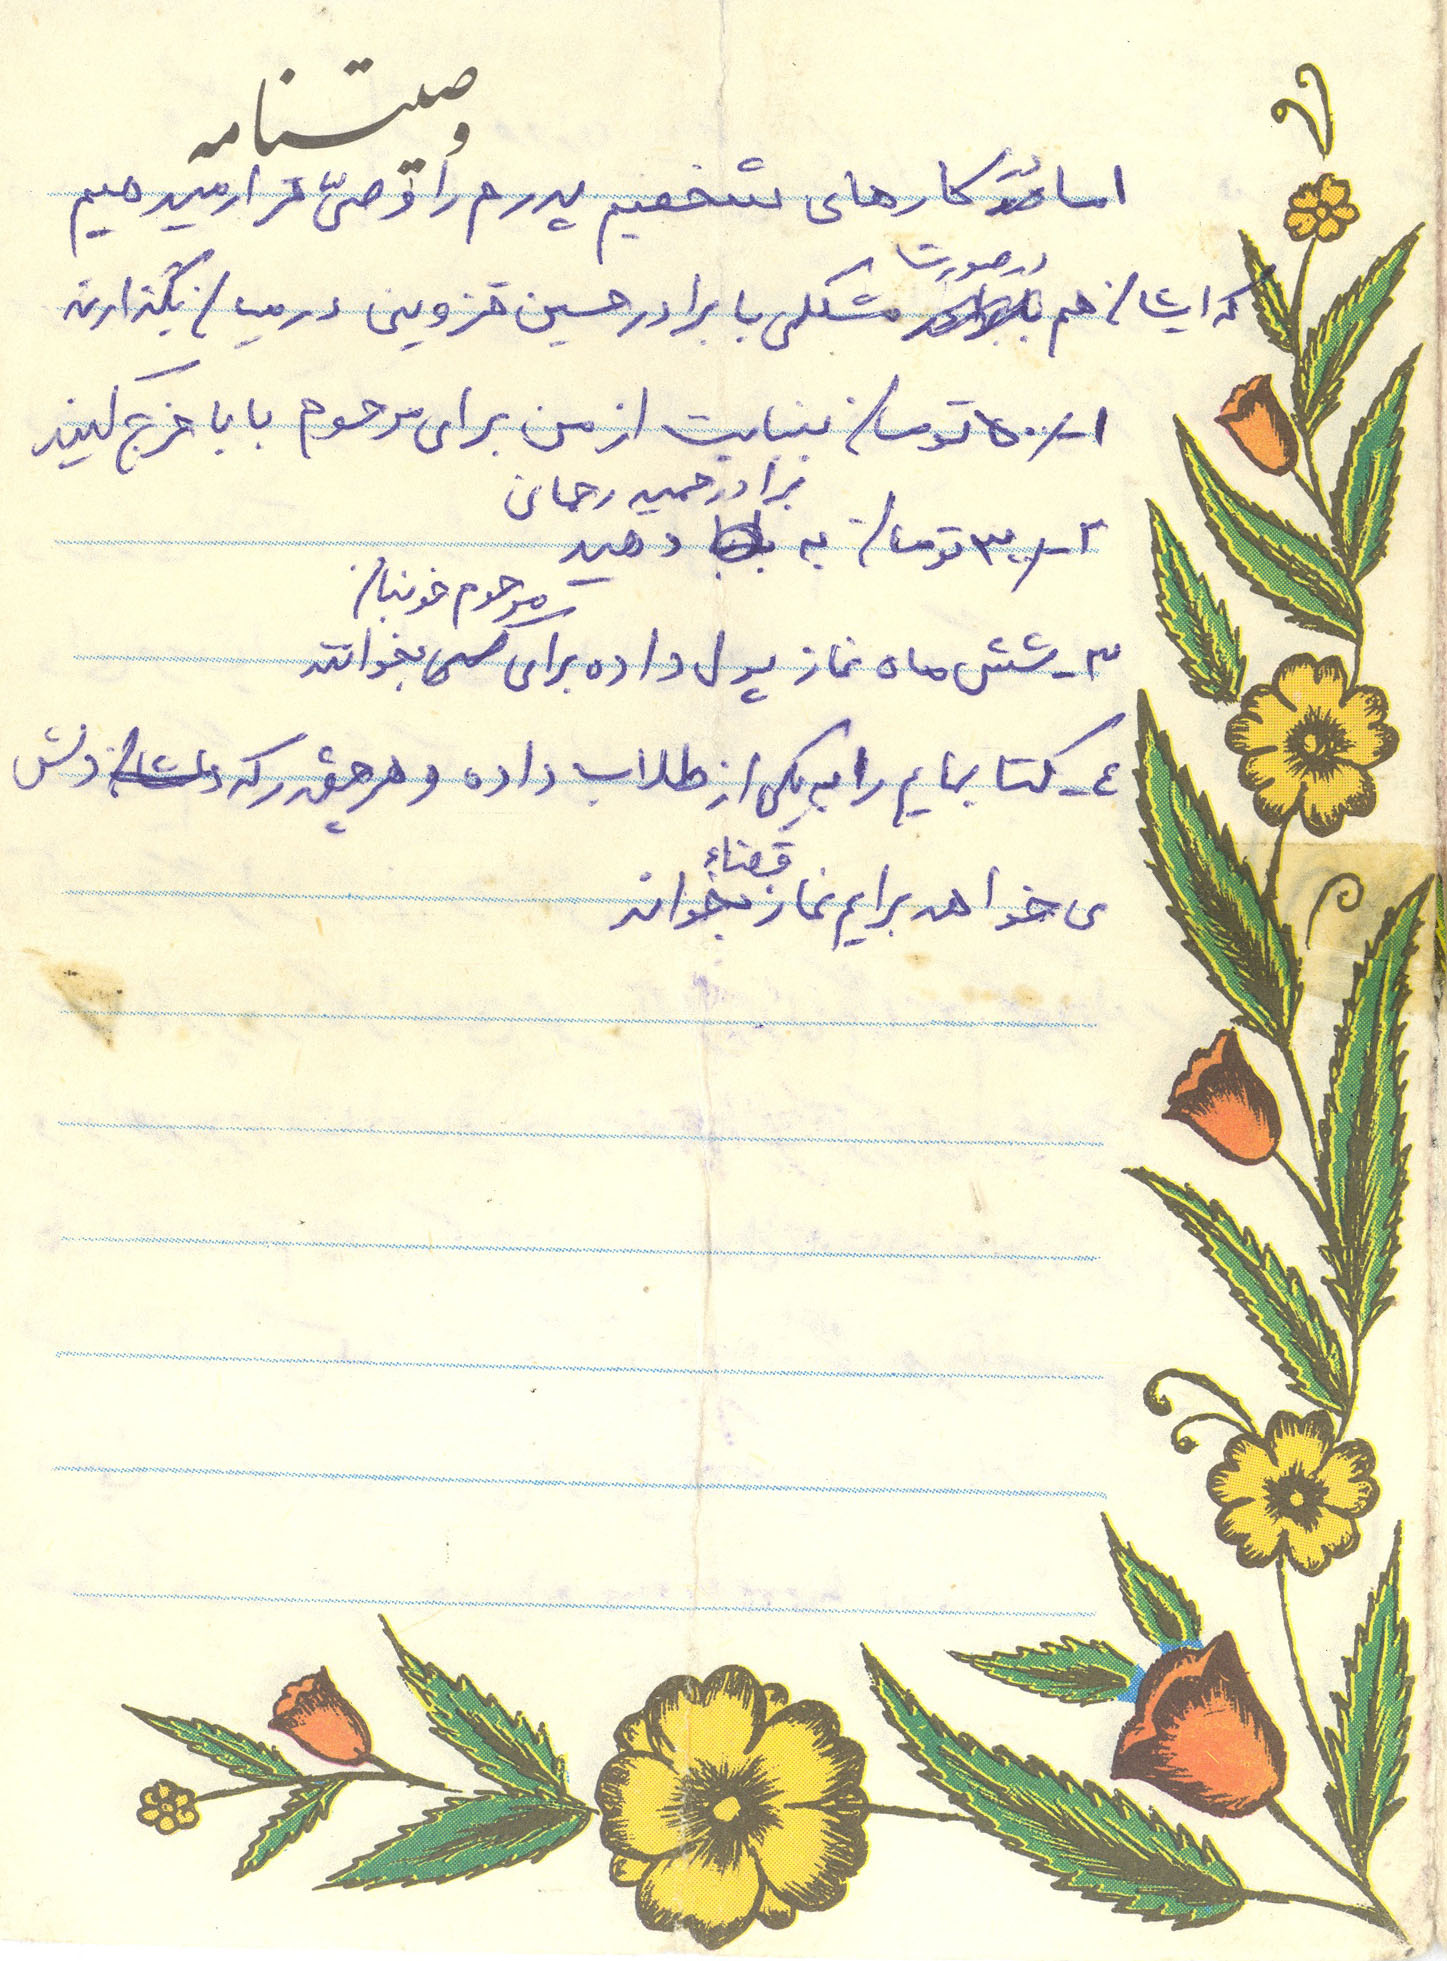 وصیتنامه
اما در کارهای شخصیم پدرم را وصیّ قرار میدهیم
که ایشان هم در صورت مشکلی با برادر حسین قزوینی در میان بگذارند
۱-۵۰۰ تومان بنیابت از من برای مرحوم بابا خرج کنید
برادر حمید رحمانی
۲-۳۰۰ تومان به دهید
مرحوم خونبان
۳-شش ماه نماز پول داده برای بخوانند
٤-کتابهایم را به یکی از طلاب داده و هر چقدر که دلش
قضاء
می خواهد برایم نماز بخواند